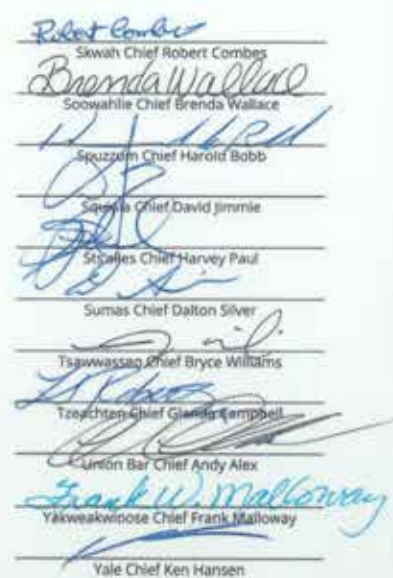 Robert Combes
Skwah Chief Robert Combes
Brenda Wallace
Soowahlie Chief Brenda Wallace
Spuzzum Chief Harold Bobb
Squiala Chief David Jimmie
Sts'ailes Chief Harvey Paul
Sumas Chief Dalton Silver
Tsawwassen Chief Bryce Williams
Tzeachten Chief Glenda Campbell
Union Bar Chief Andy Alex
Frank W. Malloway
Yakweakwioose Chief Frank Malloway
Yale Chief Ken Hansen